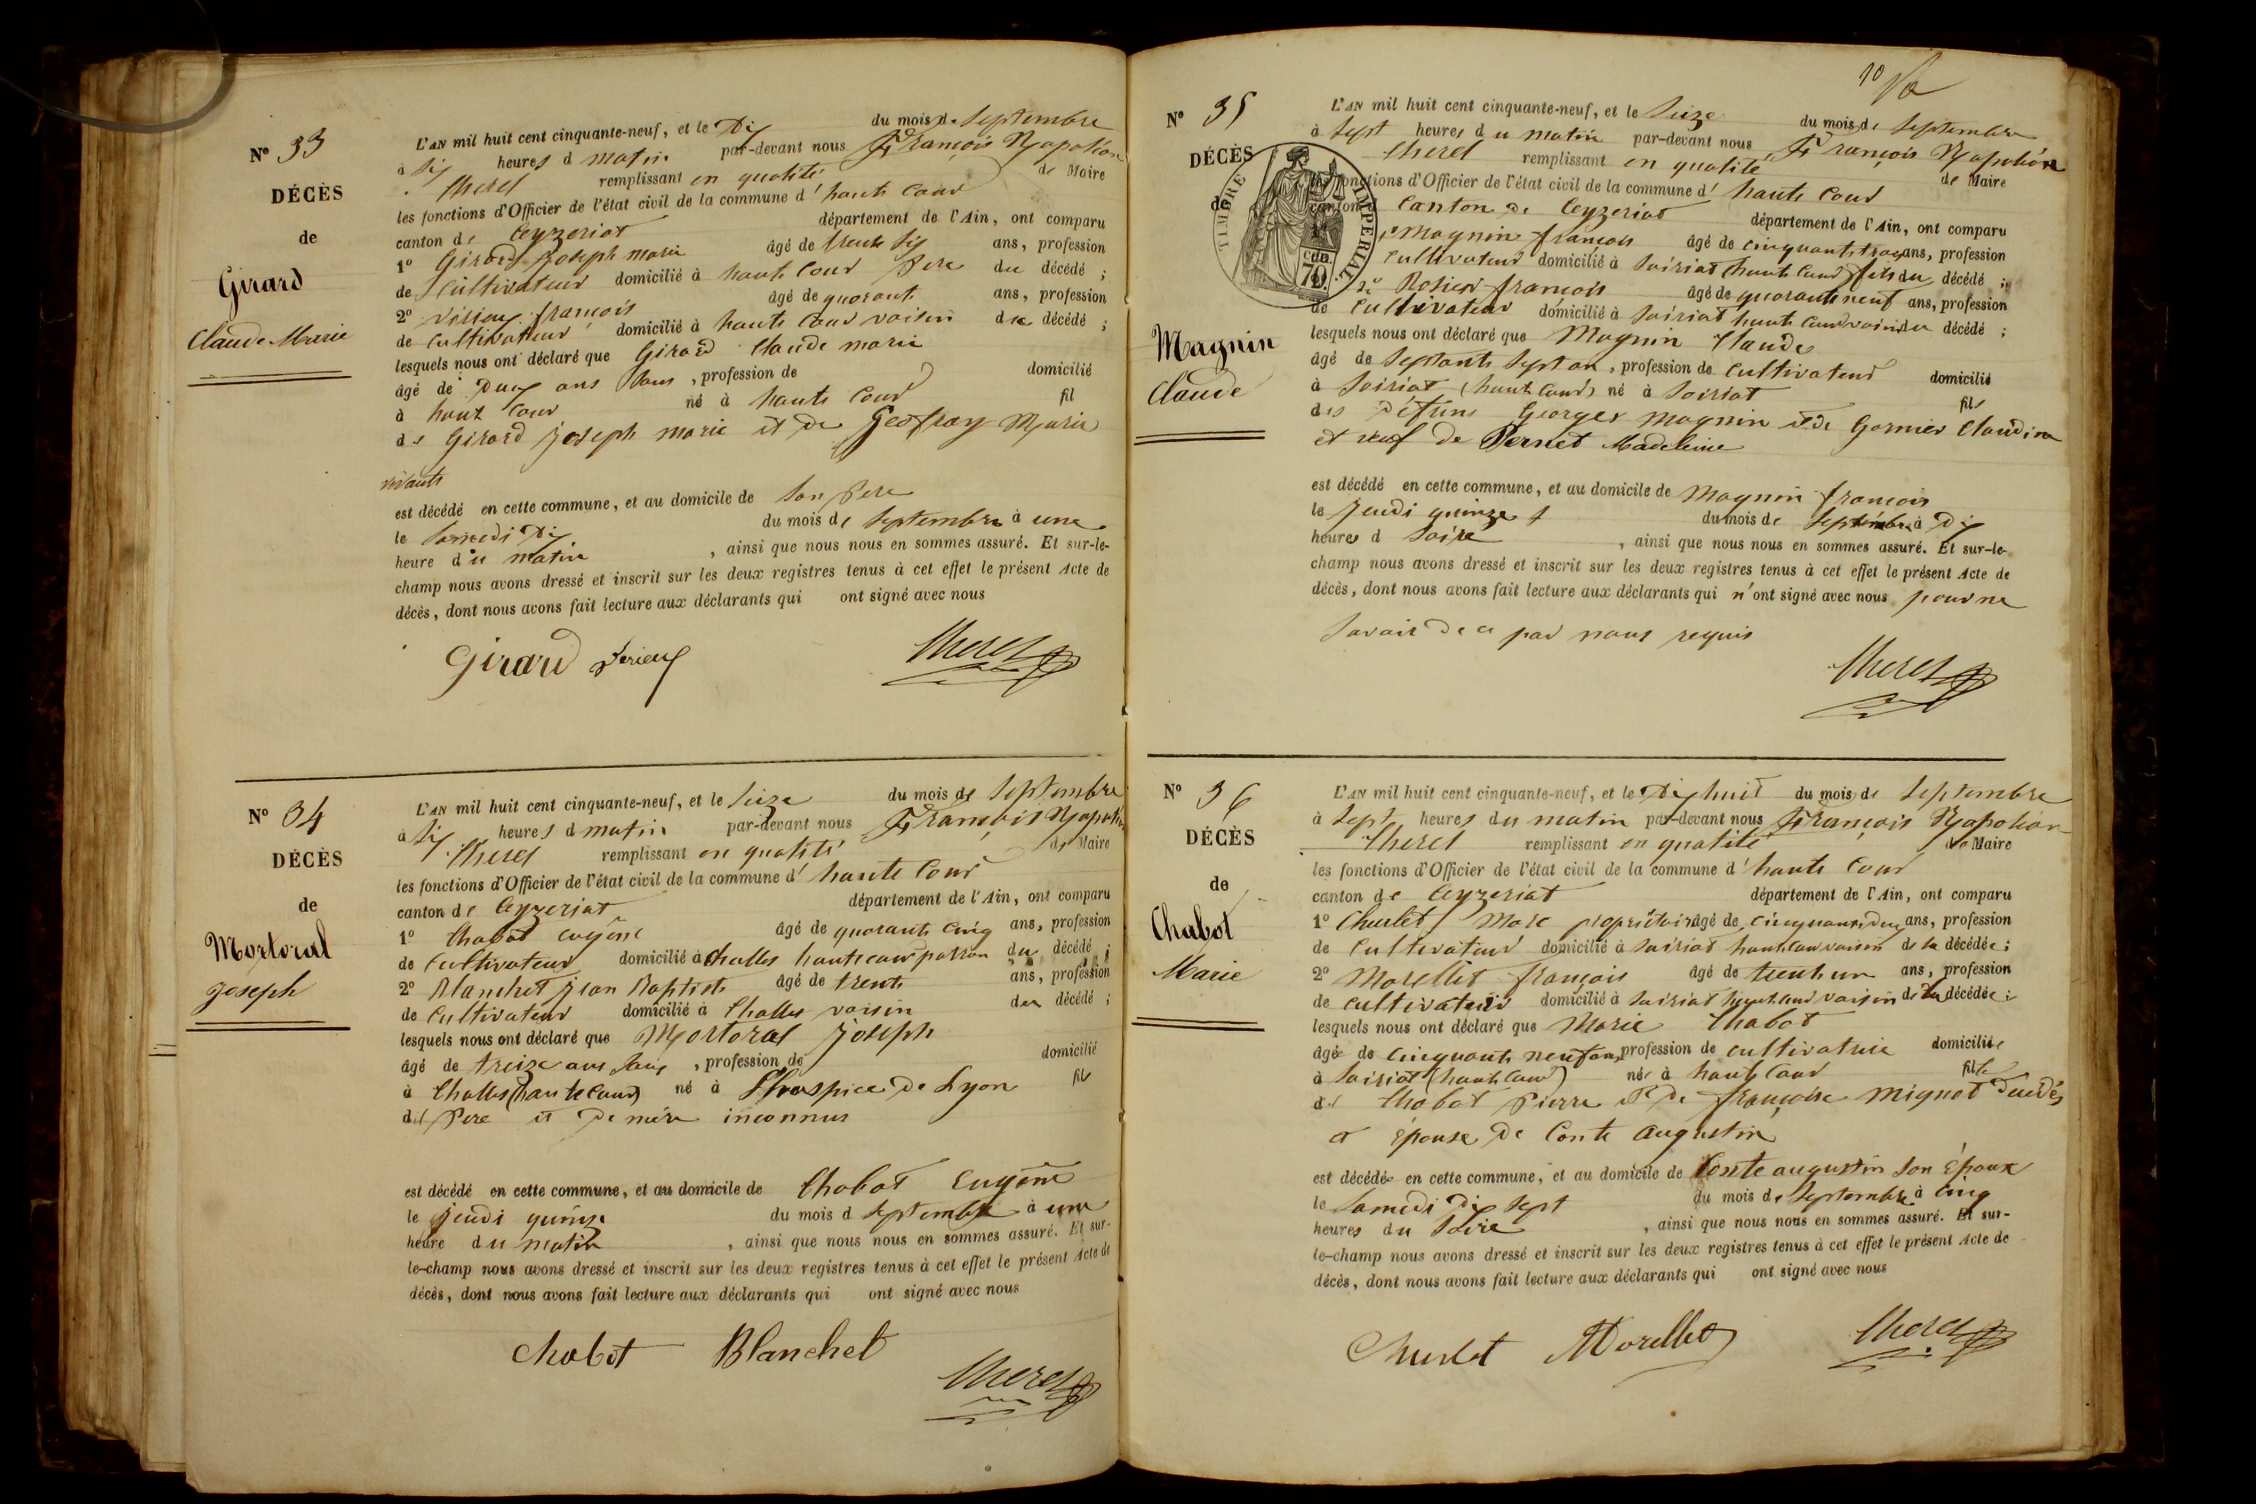 N° 33
DÉCÈS
de
Girard
Claude Marie
L'AN mil huit cent cinquante-neuf, et le Dix du mois de Septembre
à Six heures d matin par-devant nous François Napoléon
Cheret remplissant en qualité de Maire
les fonctions d'Officier de l'état civil de la commune d' haute Cour
canton de Ceyzeriat département de l'Ain, ont comparu
1° Girard Joseph marie âgé de trente Six ans, profession
de Cultivateur domicilié à haute Cour Pere du décédé ;
2° François âgé de quarante ans, profession
de Cultivateur domicilié à haute Cour voisin du décédé ;
lesquels nous ont déclaré que Girard Claude marie
âgé de Deux ans Sans , profession de domicilié
à haut Cour né à haute Cour fil
de Girard Joseph marie et de Geoffray Marie
vivants
est décédé en cette commune, et au domicile de Son Pere
le Samedi Dix du mois de Septembre à une
heure du matin , ainsi que nous nous en sommes assuré. Et sur-le-
champ nous avons dressé et inscrit sur les deux registres tenus à cet effet le présent Acte de
décès, dont nous avons fait lecture aux déclarants qui ont signé avec nous
Girard Cheret
N° 34
DÉCÈS
de
Mortoral
Joseph
L'AN mil huit cent cinquante-neuf, et le Seize du mois de Septembre
à Six heures d matin par-devant nous François Napoléon
Cheret remplissant en qualité de Maire
les fonctions d'Officier de l'état civil de la commune d' haute Cour
canton de Ceyzeriat département de l'Ain, ont comparu
1° Chabot Eugène âgé de quarante Cinq ans, profession
de Cultivateur domicilié à Challes haute cour patron du décédé ;
2° Blanchet Jean Baptiste âgé de trente ans, profession
de Cultivateur domicilié à Challes voisin du décédé ;
lesquels nous ont déclaré que Mortoral Joseph
âgé de treize ans Sans , profession de domicilié
à Challes (haute Cour) né à l'hospice de Lyon fils
de Pere et De mère inconnus
est décédé en cette commune, et au domicile de Chabot Eugène
le jeudi quinze du mois d Septembre à une
heure du matin , ainsi que nous nous en sommes assuré. Et sur-
le-champ nous avons dressé et inscrit sur les deux registres tenus à cet effet le présent Acte de
décès, dont nous avons fait lecture aux déclarants qui ont signé avec nous
Chabot Blanchet
Cheret
10
N° 35
DÉCÈS
de
Magnin
Claude
TIMBRE IMPERIAL
70
L'AN mil huit cent cinquante-neuf, et le Seize du mois de Septembre
à Sept heures du matin par-devant nous François Napoléon
Cheret remplissant en qualité de Maire
les fonctions d'Officier de l'état civil de la commune d' haute Cour
canton d Canton de Ceyzeriat département de l'Ain, ont comparu
1° Magnin françois âgé de cinquante trois ans, profession
Cultivateur domicilié à Soiriat (haute Cour) fils du décédé ;
2° Rosier françois âgé de quarante neuf ans, profession
de Cultivateur domicilié à Soiriat haute Cour voisin du décédé ;
lesquels nous ont déclaré que Magnin Claude
âgé de Septante Sept an , profession de Cultivateur domicilié
à Soiriat (haute Cour) né à Soiriat fils
des Défuns Georges Magnin et de Garnier Claudine
et veuf de Pernet Madeleine
est décédé en cette commune, et au domicile de Magnin françois
le Jeudi quinze du mois de Septembre à Dix
heures d Soire , ainsi que nous nous en sommes assuré. Et sur-le-
champ nous avons dressé et inscrit sur les deux registres tenus à cet effet le présent Acte de
décès, dont nous avons fait lecture aux déclarants qui n'ont signé avec nous pour ne
Savoir de ce par nous requis
Cheret
N° 36
DÉCÈS
de
Chabot
Marie
L'AN mil huit cent cinquante-neuf, et le Dix huit du mois de Septembre
à Sept heures du matin par-devant nous François Napoléon
Cheret remplissant en qualité de Maire
les fonctions d'Officier de l'état civil de la commune d' haute Cour
canton de Ceyzeriat département de l'Ain, ont comparu
1° Churlet Marc propriétaire âgé de cinquante deux ans, profession
de Cultivateur domicilié à Soiriat haute Cour voisin de la décédée ;
2° Morellet François âgé de trente un ans, profession
de cultivateur domicilié à Soiriat haute Cour voisin de la décédée ;
lesquels nous ont déclaré que Marie Chabot
âgée de Cinquante neuf ans profession de cultivatrice domiciliée
à Soiriat (haute Cour) née à haute Cour fille
de Chabot Pierre et De françoise Mignot Decedés
et Épouse De Conte Augustin
est décédée en cette commune, et au domicile de Conte augustin Son Époux
le Samedi Dix Sept du mois de Septembre à Cinq
heures du Soire , ainsi que nous nous en sommes assuré. Et sur-
le-champ nous avons dressé et inscrit sur les deux registres tenus à cet effet le présent Acte de
décès, dont nous avons fait lecture aux déclarants qui ont signé avec nous
Churlet Morellet Cheret